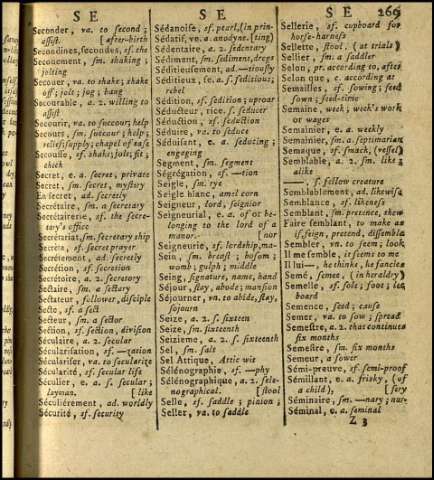 S E
S E
S E 269
Seconder, va. to second;
assist. [after-birth
Secondines, secondes, sf. the
Secouement, sm. shaking;
jolting
Secouer, va. to shake; shake
off; jolt; jog; bang
Secourable, a. 2. willing to
assist
Secourir, va. to succour; help
Secours, sm. succour; help;
relief; supply; chapel of ease
Secousse, sf. shake; jolt; fit;
check
Secret, e. a. secret; private
Secret, sm. secret, mystery
En secret, ad. secretly
Secrétaire, sm. a secretary
Secrétairerie, sf. the secre-
tary's office
Secrétariat, sm. secretary ship
Secrète, sf. secret prayer
Secrétement, ad. secretly
Secrétion, sf. secretion
Secrétoire, a. 2. secretory
Sectaire, sm. a sectary
Sectateur, follower, disciple
Secte, sf. a sect
Secteur, sm. a sector
Section, sf. section, division
Séculaire, a. 2. secular
Sécularisation, sf. —zation
Séculariser, va. to secularize
Sécularité, sf. secular life
Séculier, e. a. s. secular;
layman. [like
Séculiérement, ad. worldly
Sécurité, sf. security
Sédanoise, sf. pearl, (in prin-
Sédatif, ve. a. anodyne. [ting)
Sédentaire, a. 2. sedentary
Sédiment, sm. sediment, dregs
Séditieusement, ad. —tiously
Séditieux, se. a. s. seditious;
rebel
Sédition, sf. sedition; uproar
Séducteur, rice. s. seducer
Séduction, sf. seduction
Séduire, va. to seduce
Séduisant, e. a. seducing;
engaging
Segment, sm. segment
Ségrégation, sf. —tion
Seigle, sm. rye
Seigle blanc, amel corn
Seigneur, lord, seignior
Seigneurial, e. a. of or be-
longing to the lord of a
manor. [nor
Seigneurie, sf. lordship, ma-
Sein, sm. breast; bosom;
womb; gulph; middle
Seing, signature, name, hand
Séjour, stay, abode; mansion
Séjourner, vn. to abide, stay,
sojourn
Seize, a. 2. s. sixteen
Seize, sm. sixteenth
Seizieme, a. 2. s. sixteenth
Sel, sm. salt
Sel Attique, Attic wit
Sélénographie, sf. —phy
Sélénographique, a. 2. sele-
nographical. [stool
Selle, sf. saddle; pinion;
Seller, va. to saddle
Sellerie, sf. cupboard for
horse-harness
Sellette, stool, (at trials)
Sellier, sm. a saddler
Selon, pr. according to, after
Selon que, c. according as
Semailles, sf. sowing; seed
sown; seed-time
Semaine, week; week's work
or wages
Semainier, e. a. weekly
Semainier, sm. a septimarian
Semaque, sf. smack, (vessel)
Semblable, a. 2. sm. like
alike
——, s. fellow creature
Semblablement, ad. likewise
Semblance, sf. likeness
Semblant, sm. pretence, shew
Faire semblant, to make as
if, feign, pretend, dissemble
Sembler, vn. to seem; look
Il me semble, it seems to me
Il lui—, he thinks, he fancies
Semé, e. semee, (in heraldry)
Semelle, sf. sole; foot; led
board
Semence, seed; cause
Semer, va. to sow; spread
Semestre, a. 2. that continues
six months
Semestre, sm. six months
Semeur, a sower
Sémi-preuve, sf. semi-proof
Sémillant, e. a. frisky, (of
a child), [sery
Séminaire, sm. —nary; nur-
Séminal, e. a. seminal
Z 3